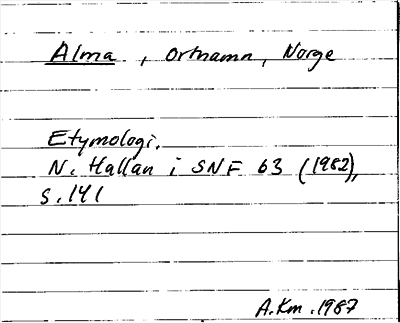 Alma, Ortnamn, Norge
Etymologi.
N. Hallan i SNF 63 (1982),
s. 141
A.Km. 1987